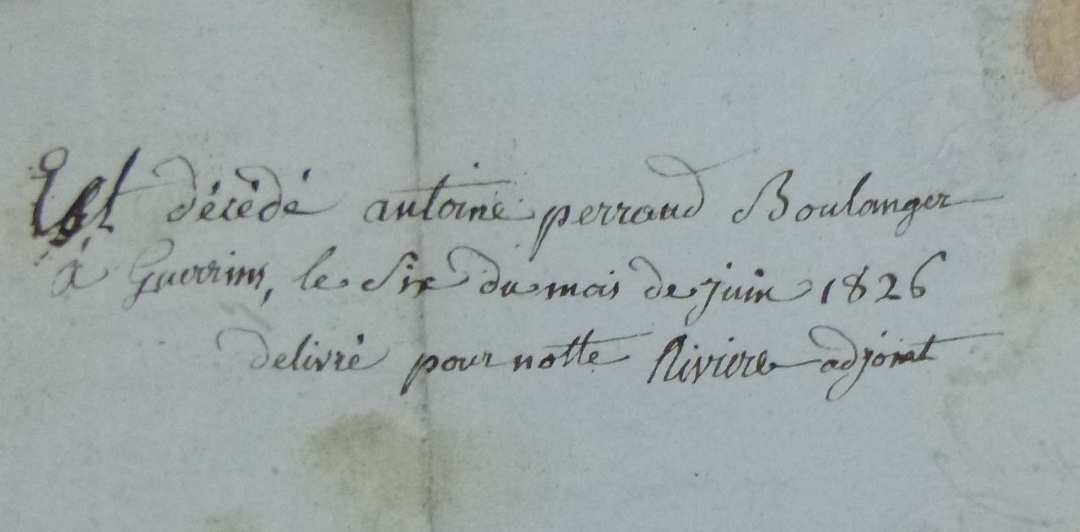 Est décédé antoine perraud Boulanger
à Guerrins, le Six du mois de juin 1826
delivré pour notte Riviere adjoint